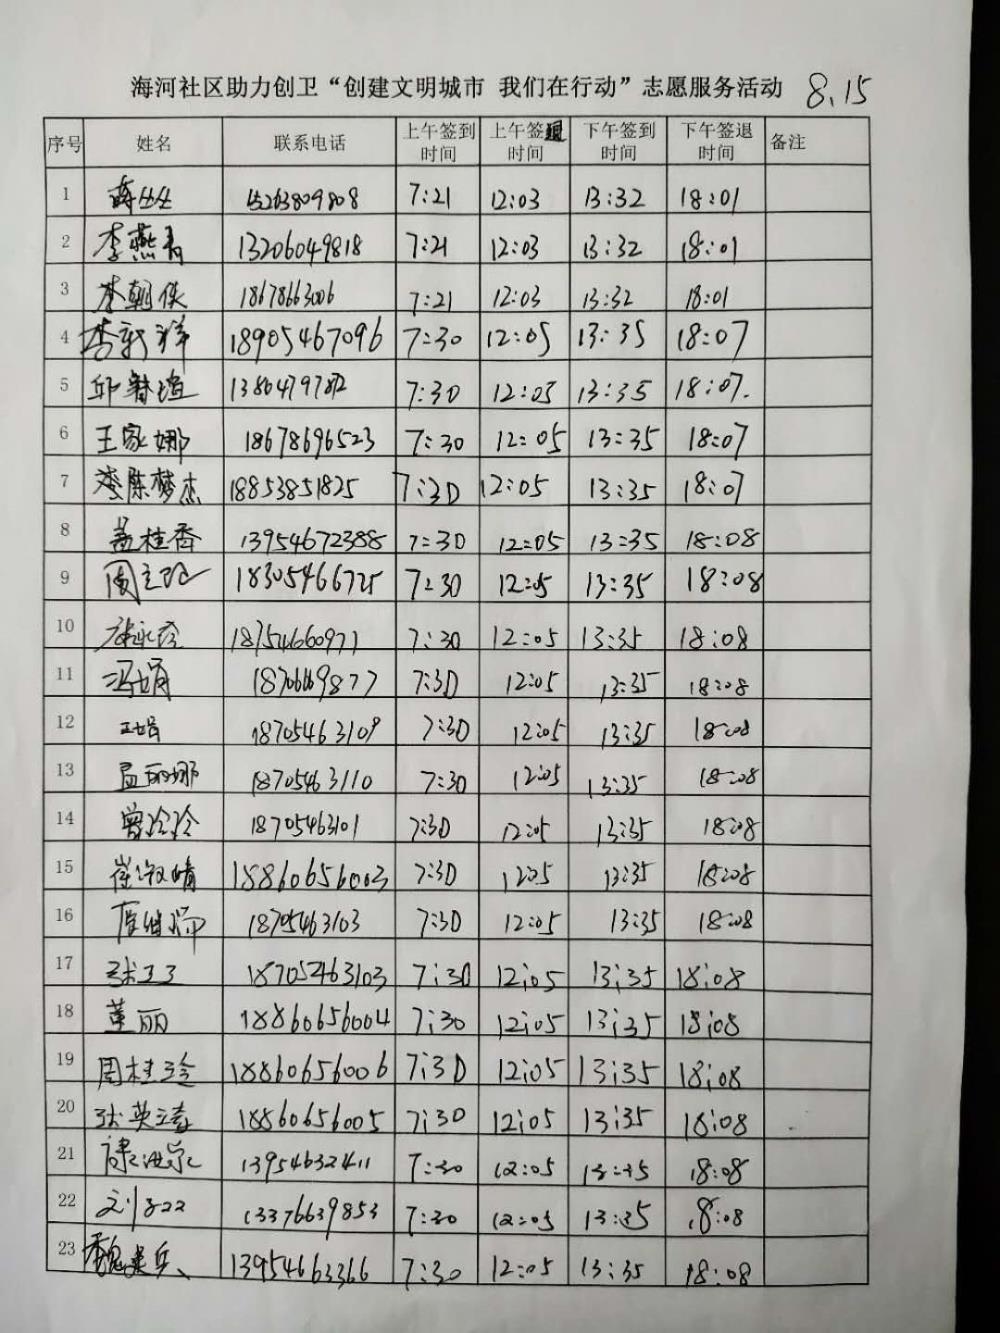 海河社区助力创卫“创建文明城市 我们在行动”志愿服务活动 8.15
序号 姓名 联系电话 上午签到时间 上午签退时间 下午签到时间 下午签退时间 备注
1 蒋丛丛 15263809808 7:21 12:03 13:32 18:01
2 李燕青 13206049818 7:21 12:03 13:32 18:01
3 李朝侠 18678663006 7:21 12:03 13:32 18:01
4 李新祥 18905467096 7:30 12:05 13:35 18:07
5 邱春谊 7:30 12:05 13:35 18:07.
6 王家娜 18678696523 7:30 12:05 13:35 18:07
7 陈梦杰 18853851825 7:30 12:05 13:35 18:07
8 孟桂香 13954672388 7:30 12:05 13:35 18:08
9 周 18305466725 7:30 12:05 13:35 18:08
10 18754660971 7:30 12:05 13:35 18:08
11 冯娟 7:30 12:05 13:35 18:08
12 王娟 18705463109 7:30 12:05 13:35 18:08
13 孟丽娜 18705463110 7:30 12:05 13:35 18:08
14 曾冷冷 18705463101 7:30 12:05 13:35 18:08
15 崔淑晴 18860656003 7:30 12:05 13:35 18:08
16 18705463103 7:30 12:05 13:35 18:08
17 张卫卫 18705463103 7:30 12:05 13:35 18:08
18 董丽 18860656004 7:30 12:05 13:35 18:08
19 周桂玲 18860656006 7:30 12:05 13:35 18:08
20 张英 18860656005 7:30 12:05 13:35 18:08
21 13954632411 7:30 12:05 13:35 18:08
22 刘 13376639853 7:30 12:05 13:35 18:08
23 魏建兵 13954663366 7:30 12:05 13:35 18:08